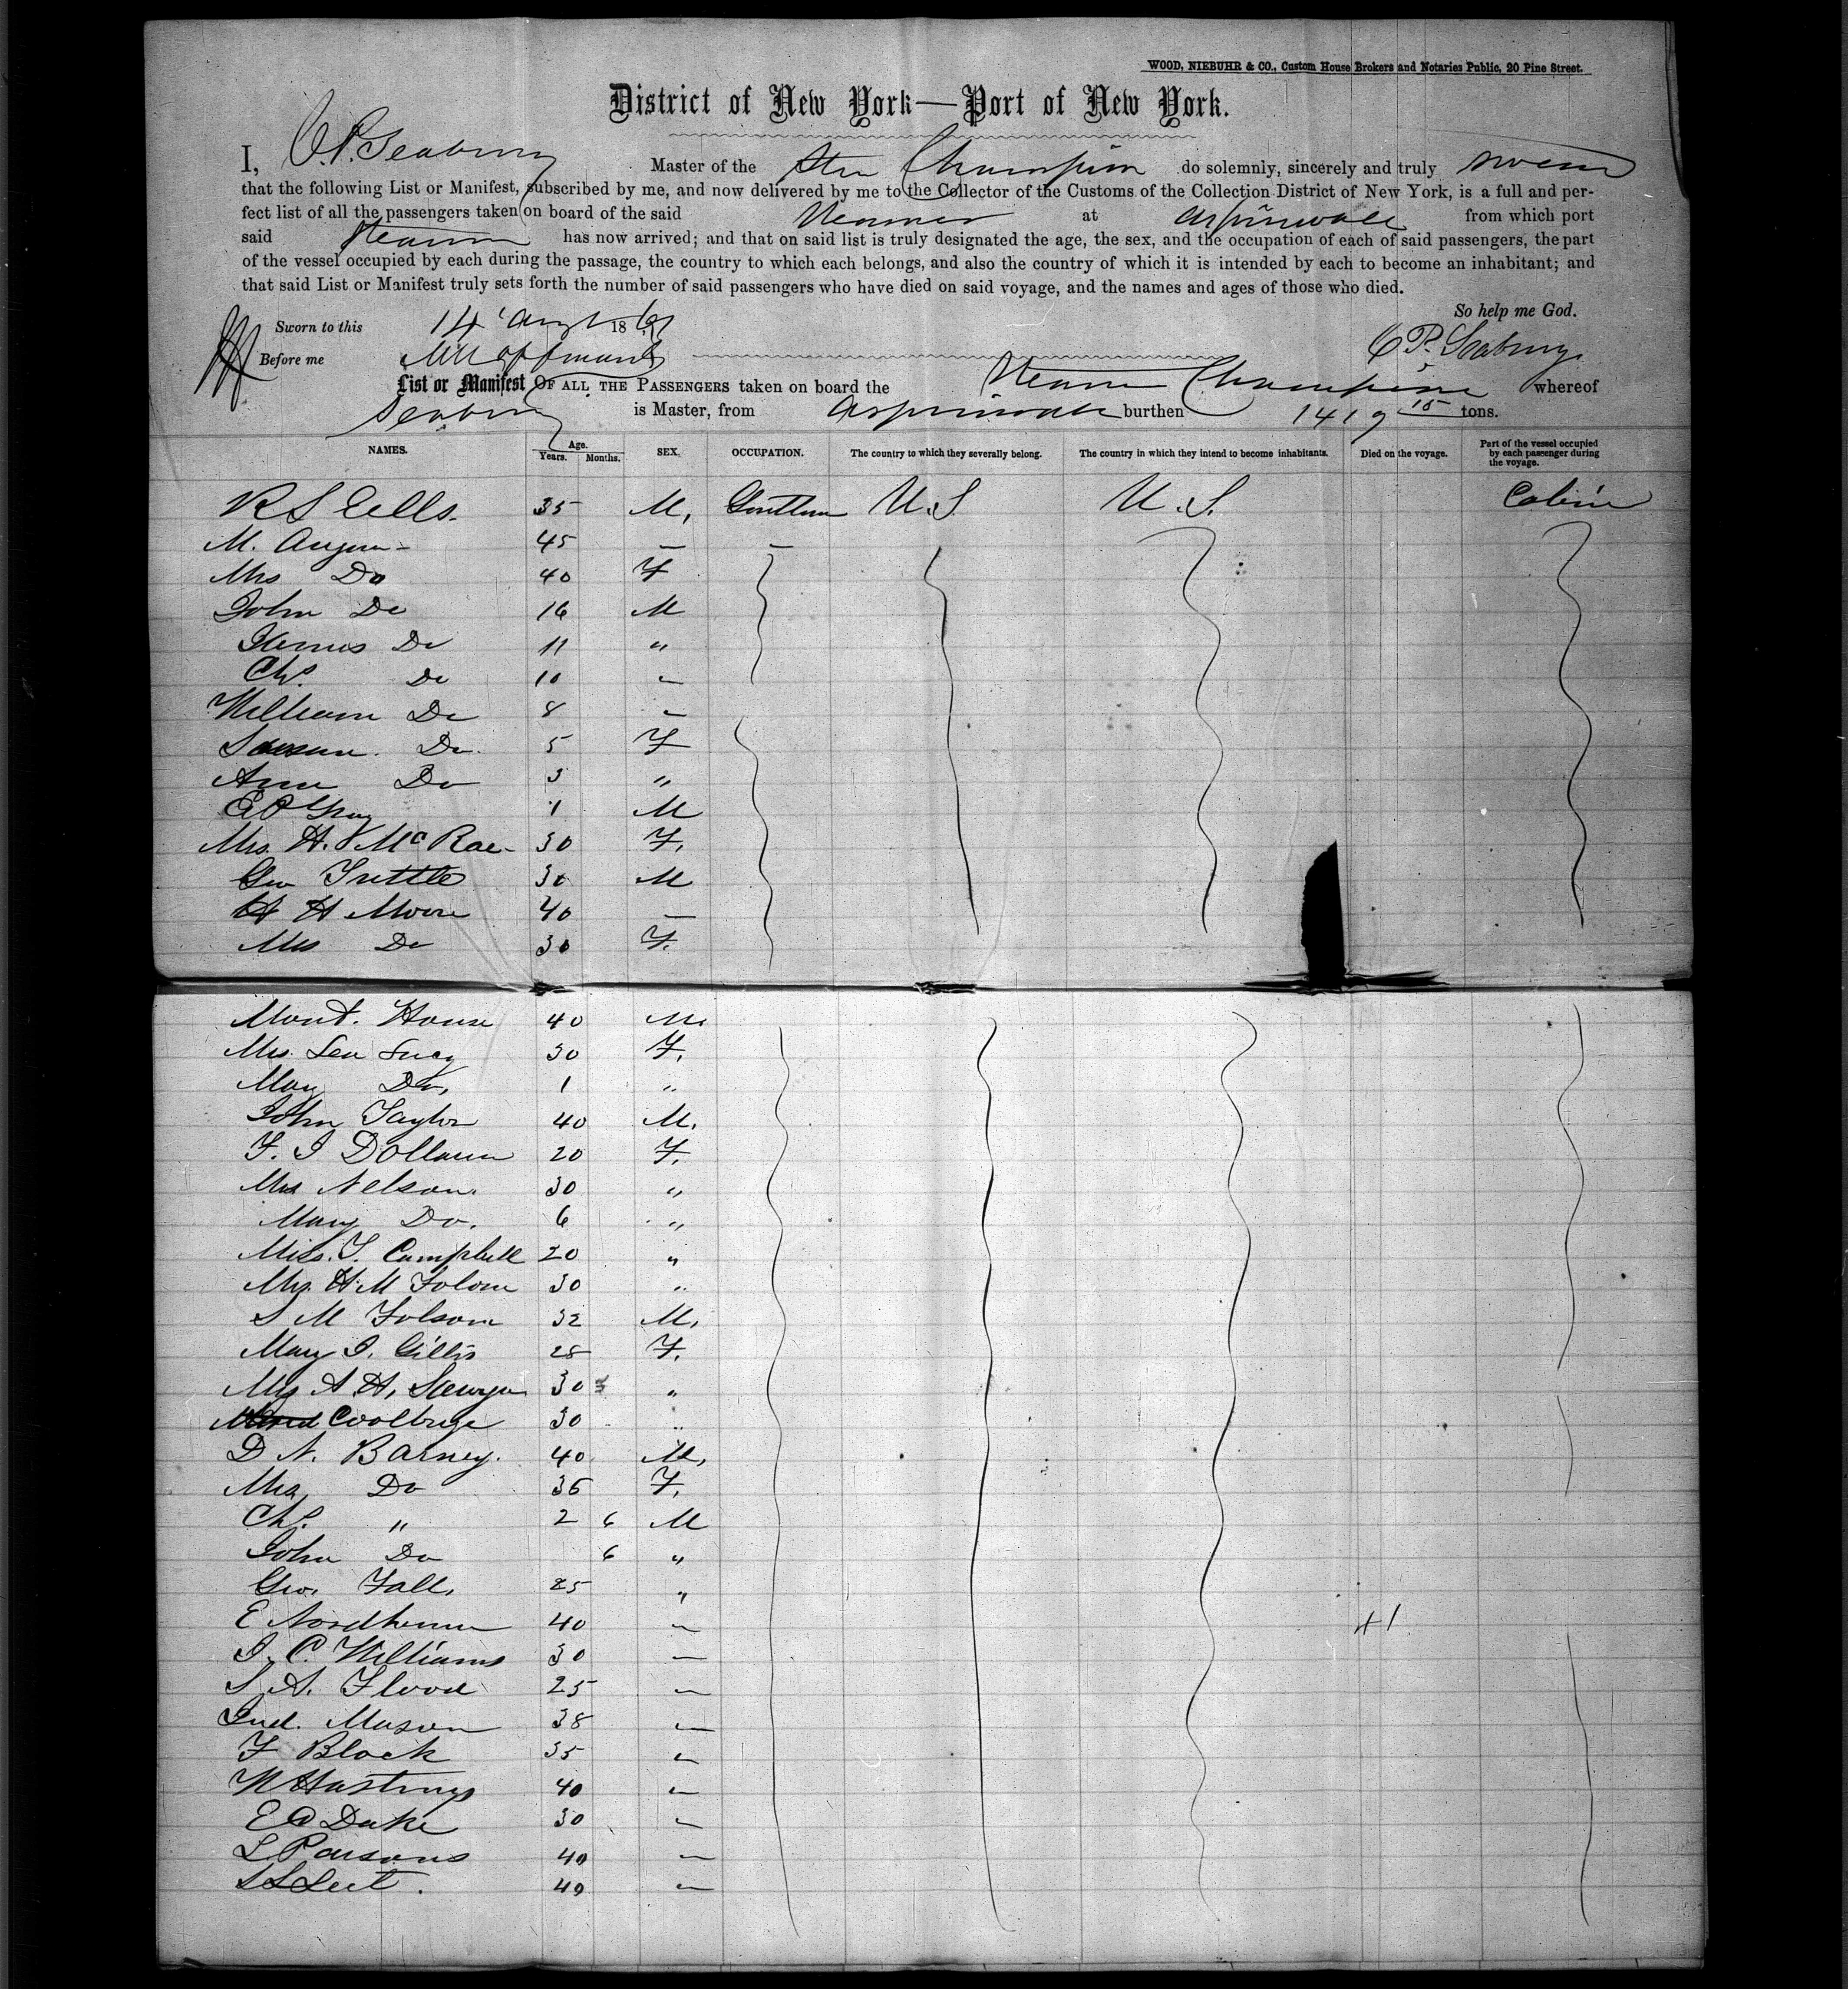 WOOD, NIEBUHR & CO., Custom House Brokers and Notaries Public, 20 Pine Street.
District of New York—Port of New York.
I, C. P. Seabury Master of the Str Champion do solemnly, sincerely and truly swear
that the following List or Manifest, subscribed by me, and now delivered by me to the Collector of the Customs of the Collection District of New York, is a full and per-
fect list of all the passengers taken on board of the said Steamer at Aspinwall from which port
said Steamer has now arrived; and that on said list is truly designated the age, the sex, and the occupation of each of said passengers, the part
of the vessel occupied by each during the passage, the country to which each belongs, and also the country of which it is intended by each to become an inhabitant; and
that said List or Manifest truly sets forth the number of said passengers who have died on said voyage, and the names and ages of those who died.
So help me God.
Sworn to this 14 Augt 186
C P. Seabury
Before me
List or Manifest OF ALL THE PASSENGERS taken on board the Steamer Champion whereof
Seabury is Master, from Aspinwall burthen 1419 15 tons.
NAMES. Age. Years. Months. SEX. OCCUPATION. The country to which they severally belong. The country in which they intend to become inhabitants. Died on the voyage. Part of the vessel occupied by each passenger during the voyage.
R S Eells. 35 M, Gentlem U.S U.S. Cabin
M. 45 — —
Mrs Do 40 F
John Do 16 M
James Do 11 "
Chs. Do 10 "
William Do 8 "
Susan. Do. 5 F
Ann Do 3 "
Gray 1 M
Mrs. H. McRae- 30 F.
Geo Tuttle 30 M
H H Moore 40 —
Mrs Do 30 F.
Mont. House 40 M.
Mrs. Lea Lucy 30 F.
May Do, 1 "
John Taylor 40 M.
F. J Dollaun 20 F.
Mrs Nelson. 30 "
Mary Do. 6 "
Miss. T. Campbell 20 "
Mrs. H. M Folsom 30 "
S M Folsom 32 M.
Mary J. Gillis 28 F.
Mrs A. H. Sawyer 30 "
Coolbrige 30 "
D N. Barney. 40 M,
Mrs Do 36 F.
Chs. " 2 6 M
John Do 6 "
Geo. Fall. 25 "
E Nordheim 40 " 41
J. C. Williams 30 —
S A. Flood 25 "
Jud. Mason 38 "
F Block 35 "
N Hastings 40 "
E C Duke 30 "
L. Parsons 40 "
S S Leet. 40 "